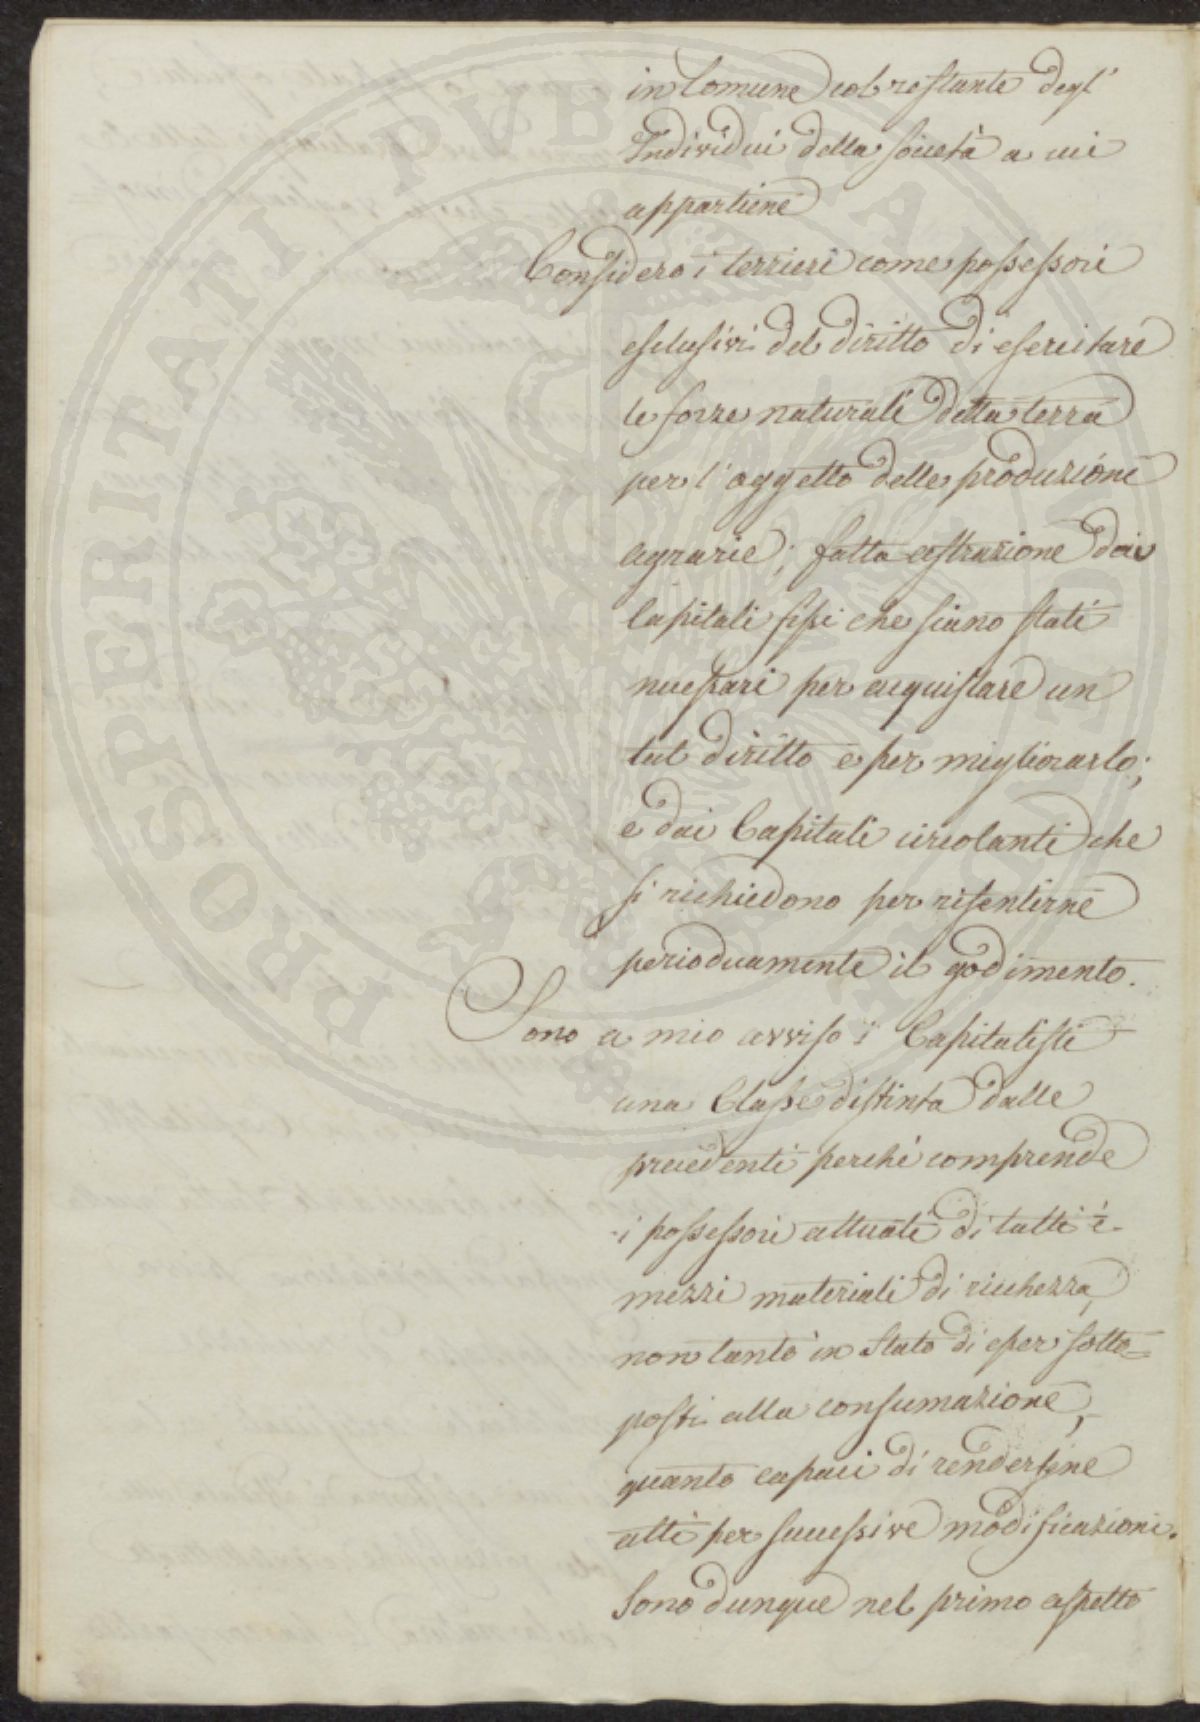 in Comune col restante degl'
Individui della società a cui
appartiene
Considero i terrieri come possessori
esclusivi del diritto di esercitare
le forze naturali della terra
per l'oggetto delle produzioni
agrarie; fatta astrazione dai
Capitali fissi che siano stati
necessari per acquistare un
tal diritto e per migliorarlo;
e dai Capitali circolanti che
si richiedono per risentirne
periodicamente il godimento.
Sono a mio avviso i Capitalisti
una Classe distinta dalle
precedenti perchè comprende
i possessori attuali di tutti i
mezzi materiali di ricchezza,
non tanto in stato di esser sotto=
posti alla consumazione,
quanto capaci di rendersene
atti per successive modificazioni.
Sono dunque nel primo aspetto
PROSPERITATI PVBLICAE AVGENDAE